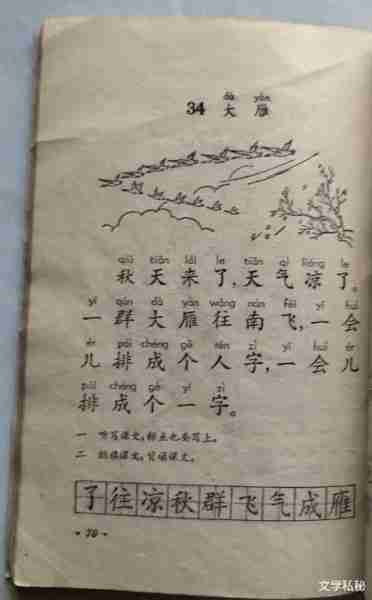 dà yàn
34 大 雁
qiū tiān lái le tiān qì liáng le
秋天来了,天气凉了。
yì qún dà yàn wǎng nán fēi yí huì
一群大雁往南飞,一会
ér pái chéng gè rén zì yí huì ér
儿排成个人字,一会儿
pái chéng gè yī zì
排成个一字。
一 听写课文,标点也要写上。
二 朗读课文,背诵课文。
了往凉秋群飞气成雁
·70·
文学私秘